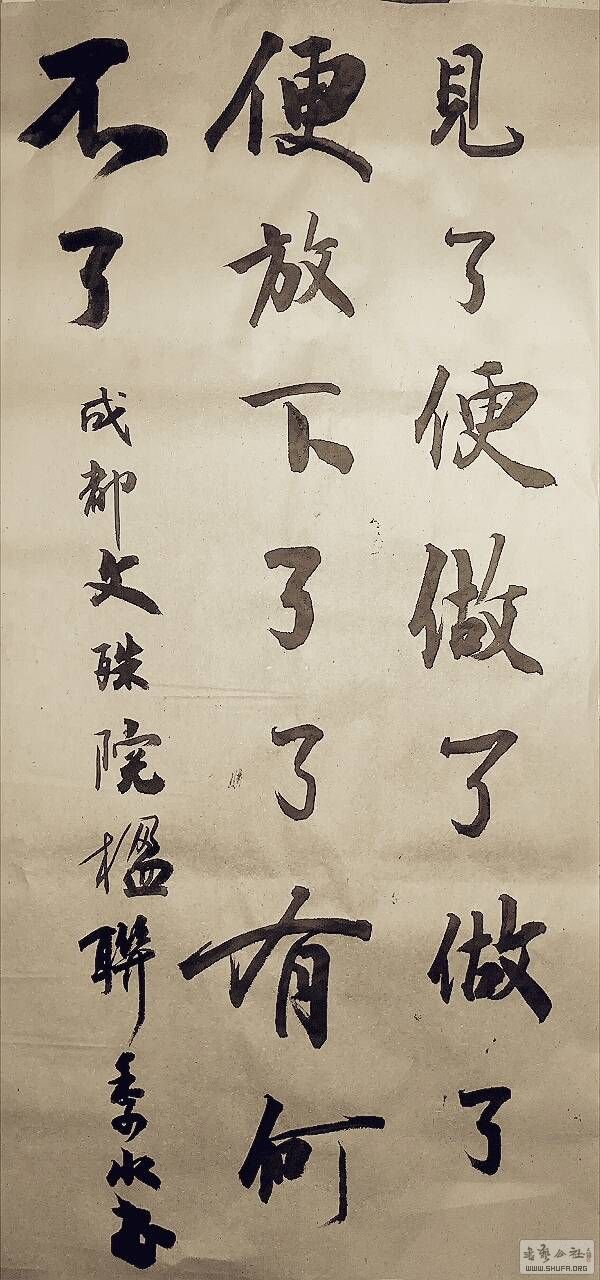 見了便做了做了
便放下了了有何
不了
成都文殊院楹聯
水书
WWW.SHUFA.ORG